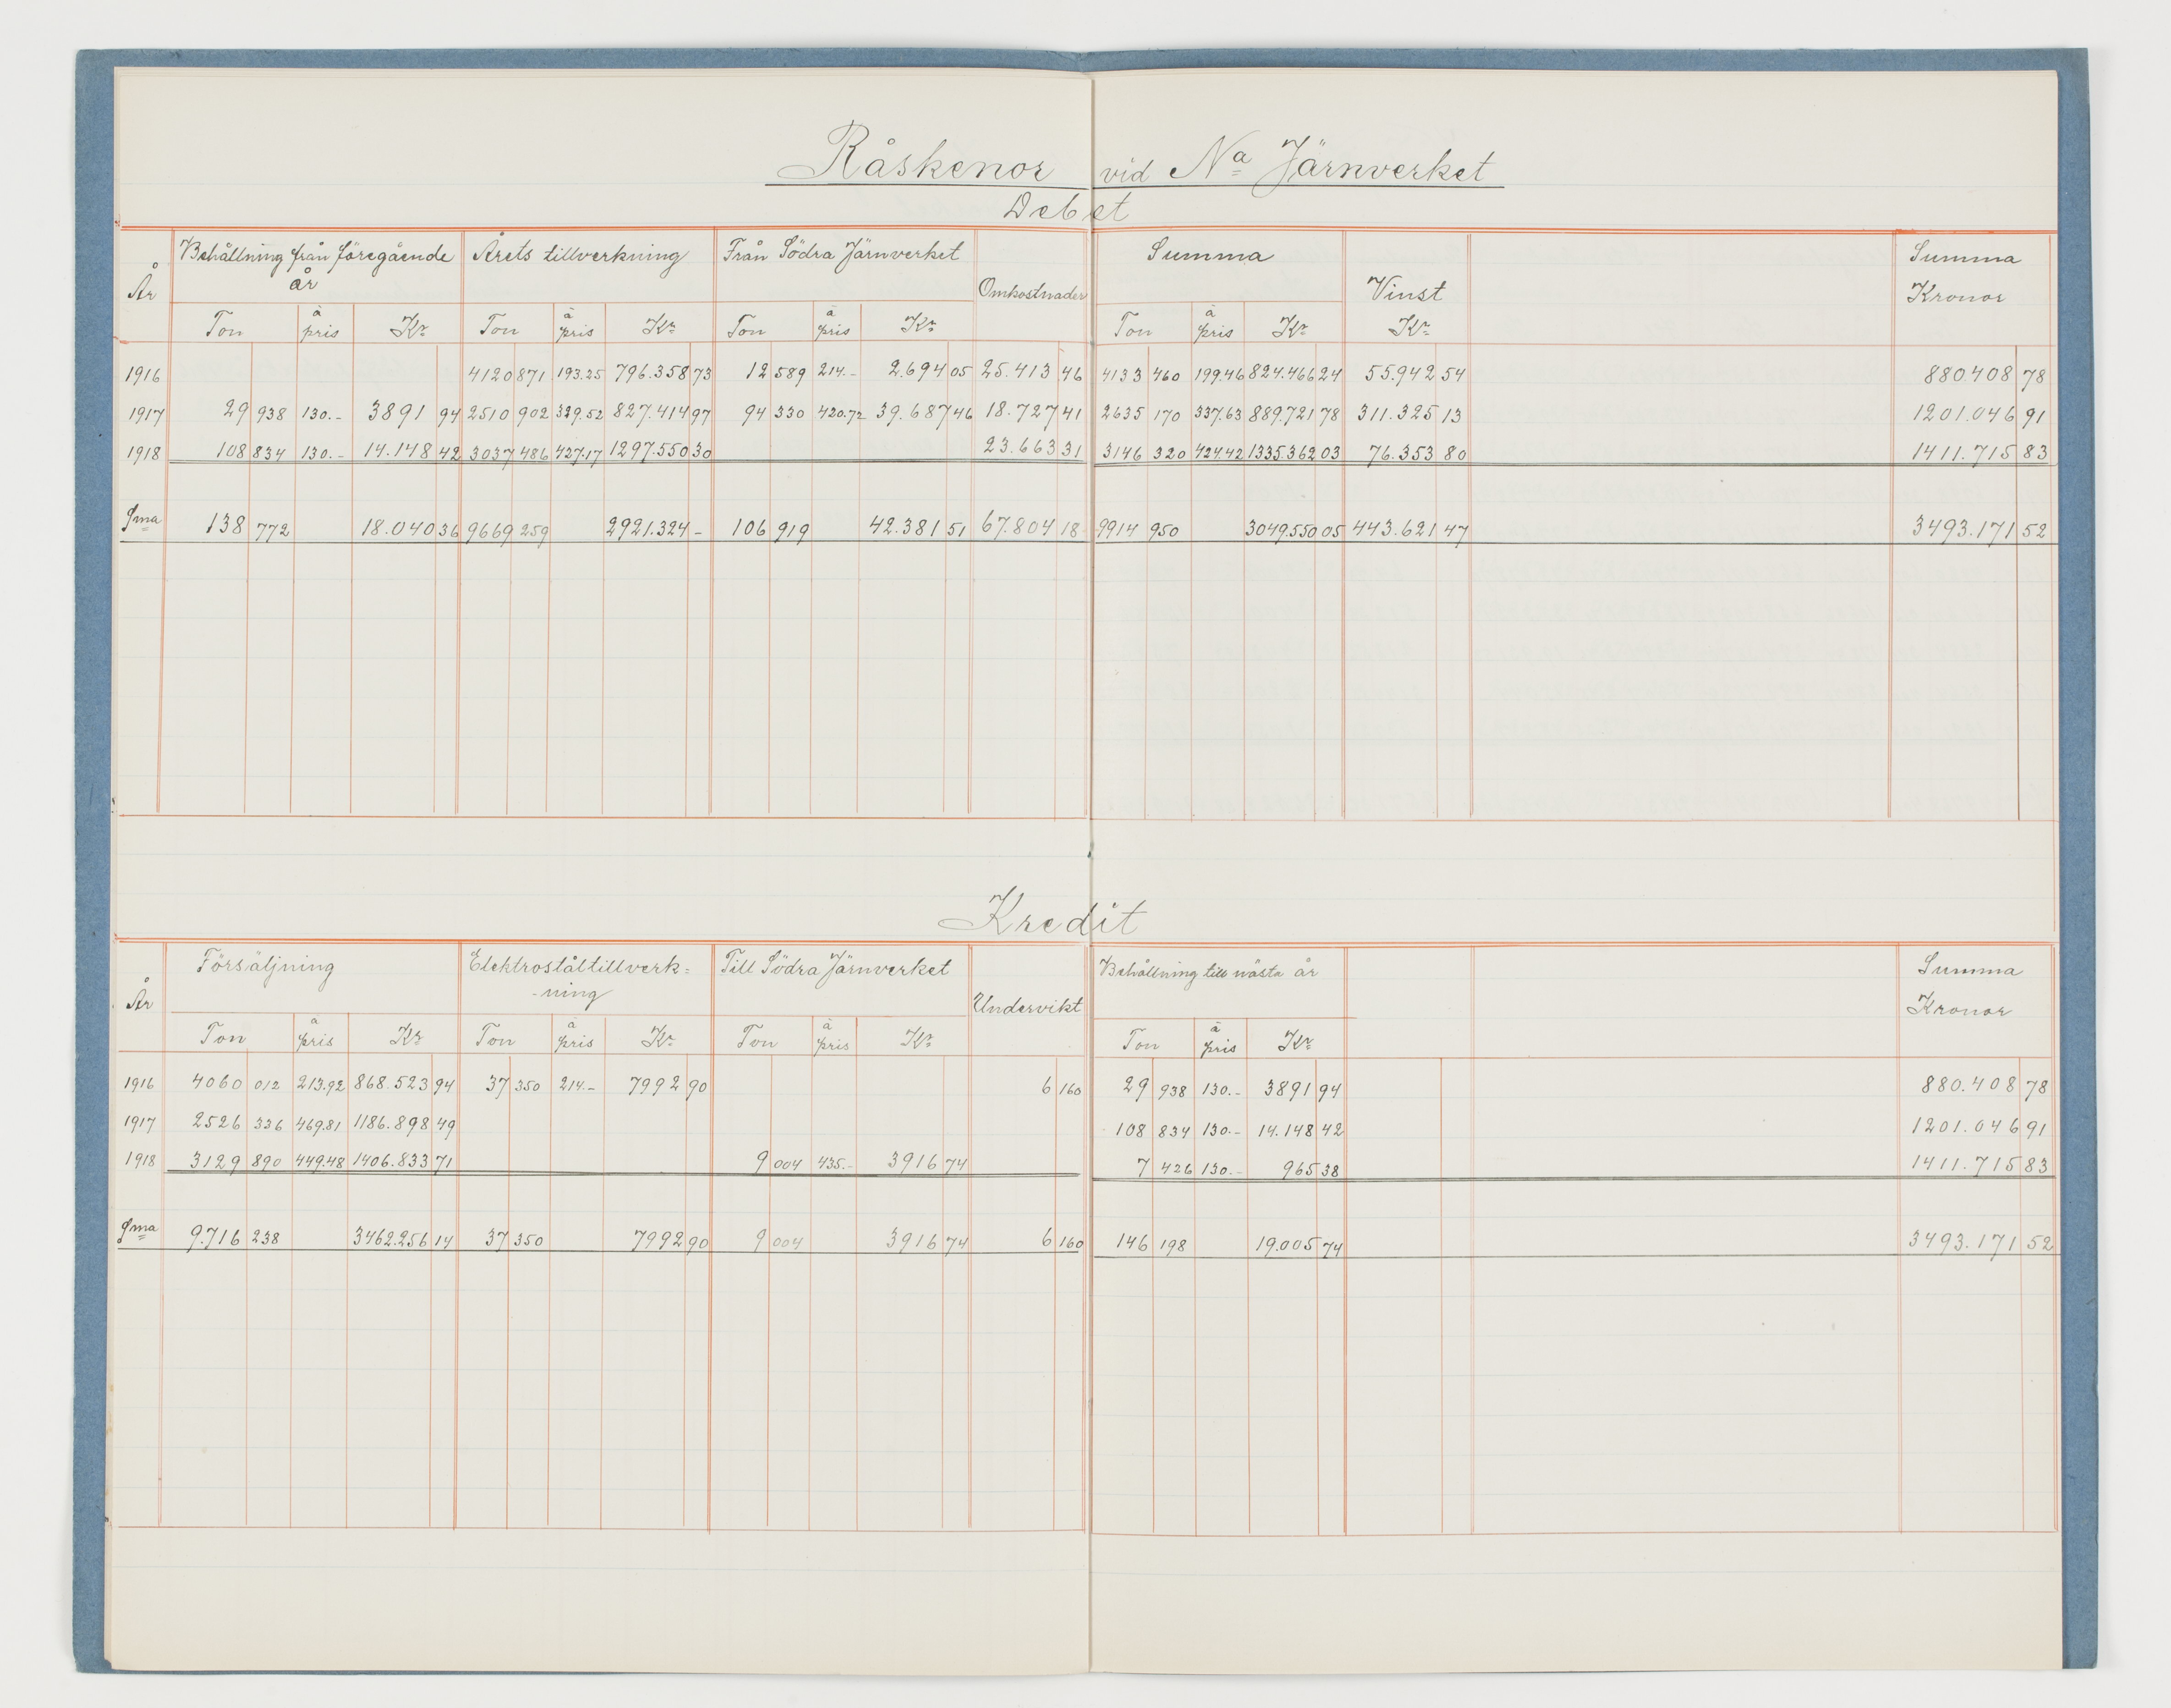 Råskenor vid Nª Järnverket
Debet
År Behållning från föregående år Årets tillverkning Från Södra Järnverket Omkostnader Summa Vinst Summa Kronor
Ton à pris Kr Ton à pris Kr Ton à pris Kr Ton à pris Kr Kr
1916 4120 871 193.25 796.358 73 12 589 214.- 2.694 05 25.413 46 4133 460 199.46 824.466 24 55.942 54 880408 78
1917 29 938 130.- 3891 94 2510 902 329.52 827.414 97 94 330 420.72 39.687 46 18.727 41 2635 170 337.63 889.721 78 311.325 13 1201.046 91
1918 108 834 130.- 14.148 42 3037 486 427.17 1297.550 30 23.663 31 3146 320 424.42 1335.362 03 76.353 80 1411.715 83
Sma 138 772 18.040 36 9669 259 2921.324 - 106 919 42.381 51 67.804 18 9914 950 3049.550 05 443.621 47 3493.171 52
Kredit
År Försäljning Elektroståltillverk=-ning Till Södra Järnverket Undervikt Behållning till nästa år Summa Kronor
Ton à pris Kr Ton à pris Kr Ton à pris Kr Ton à pris Kr
1916 4060 012 213.92 868.523 94 37 350 214.- 7992 90 6 160 29 938 130.- 3891 94 880.408 78
1917 2526 336 469.81 1186.898 49 108 834 130.- 14.148 42 1201.046 91
1918 3129 890 449.48 1406.833 71 9 004 435.- 3916 74 7 426 130.- 965 38 1411.715 83
Sma 9.716 238 3462.256 14 37 350 7992 90 9 004 3916 74 6 160 146 198 19.005 74 3493.171 52